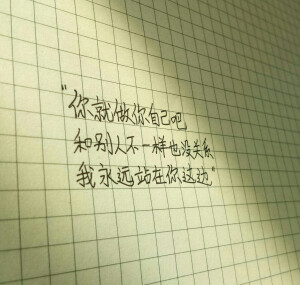 “你就做你自己吧
和别人不一样也没关系
我永远站在你这边”